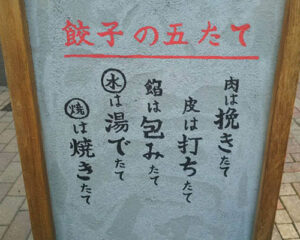 餃子の五たて
肉は挽きたて
皮は打ちたて
餡は包みたて
水は湯でたて
焼は焼きたて